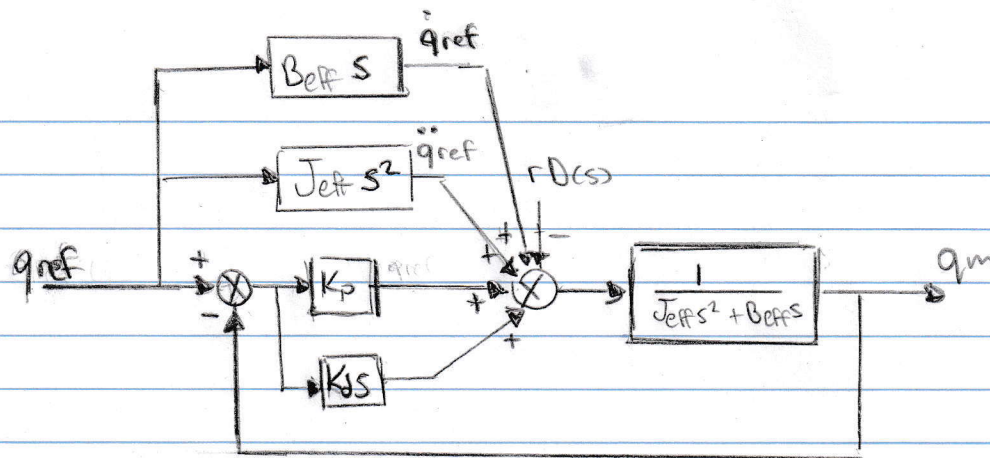 q̇ref
Beff S
q̈ref
Jeff S²
rD(s)
+
+
−
qref
+
−
Kp
+
+
1
Jeffs² + Beffs
qm
Kds